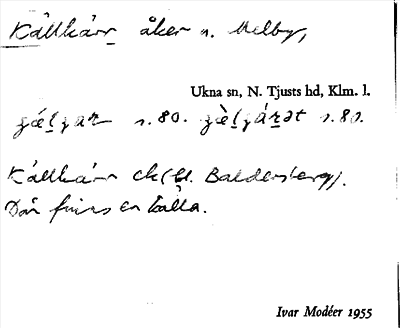 Källkärr åker n. Melby,
Ukna sn, N. Tjusts hd, Klm. l.
s. 80. s. 80.
Källkärr (Baldersberg).
Där finns en källa.
Ivar Modéer 1955